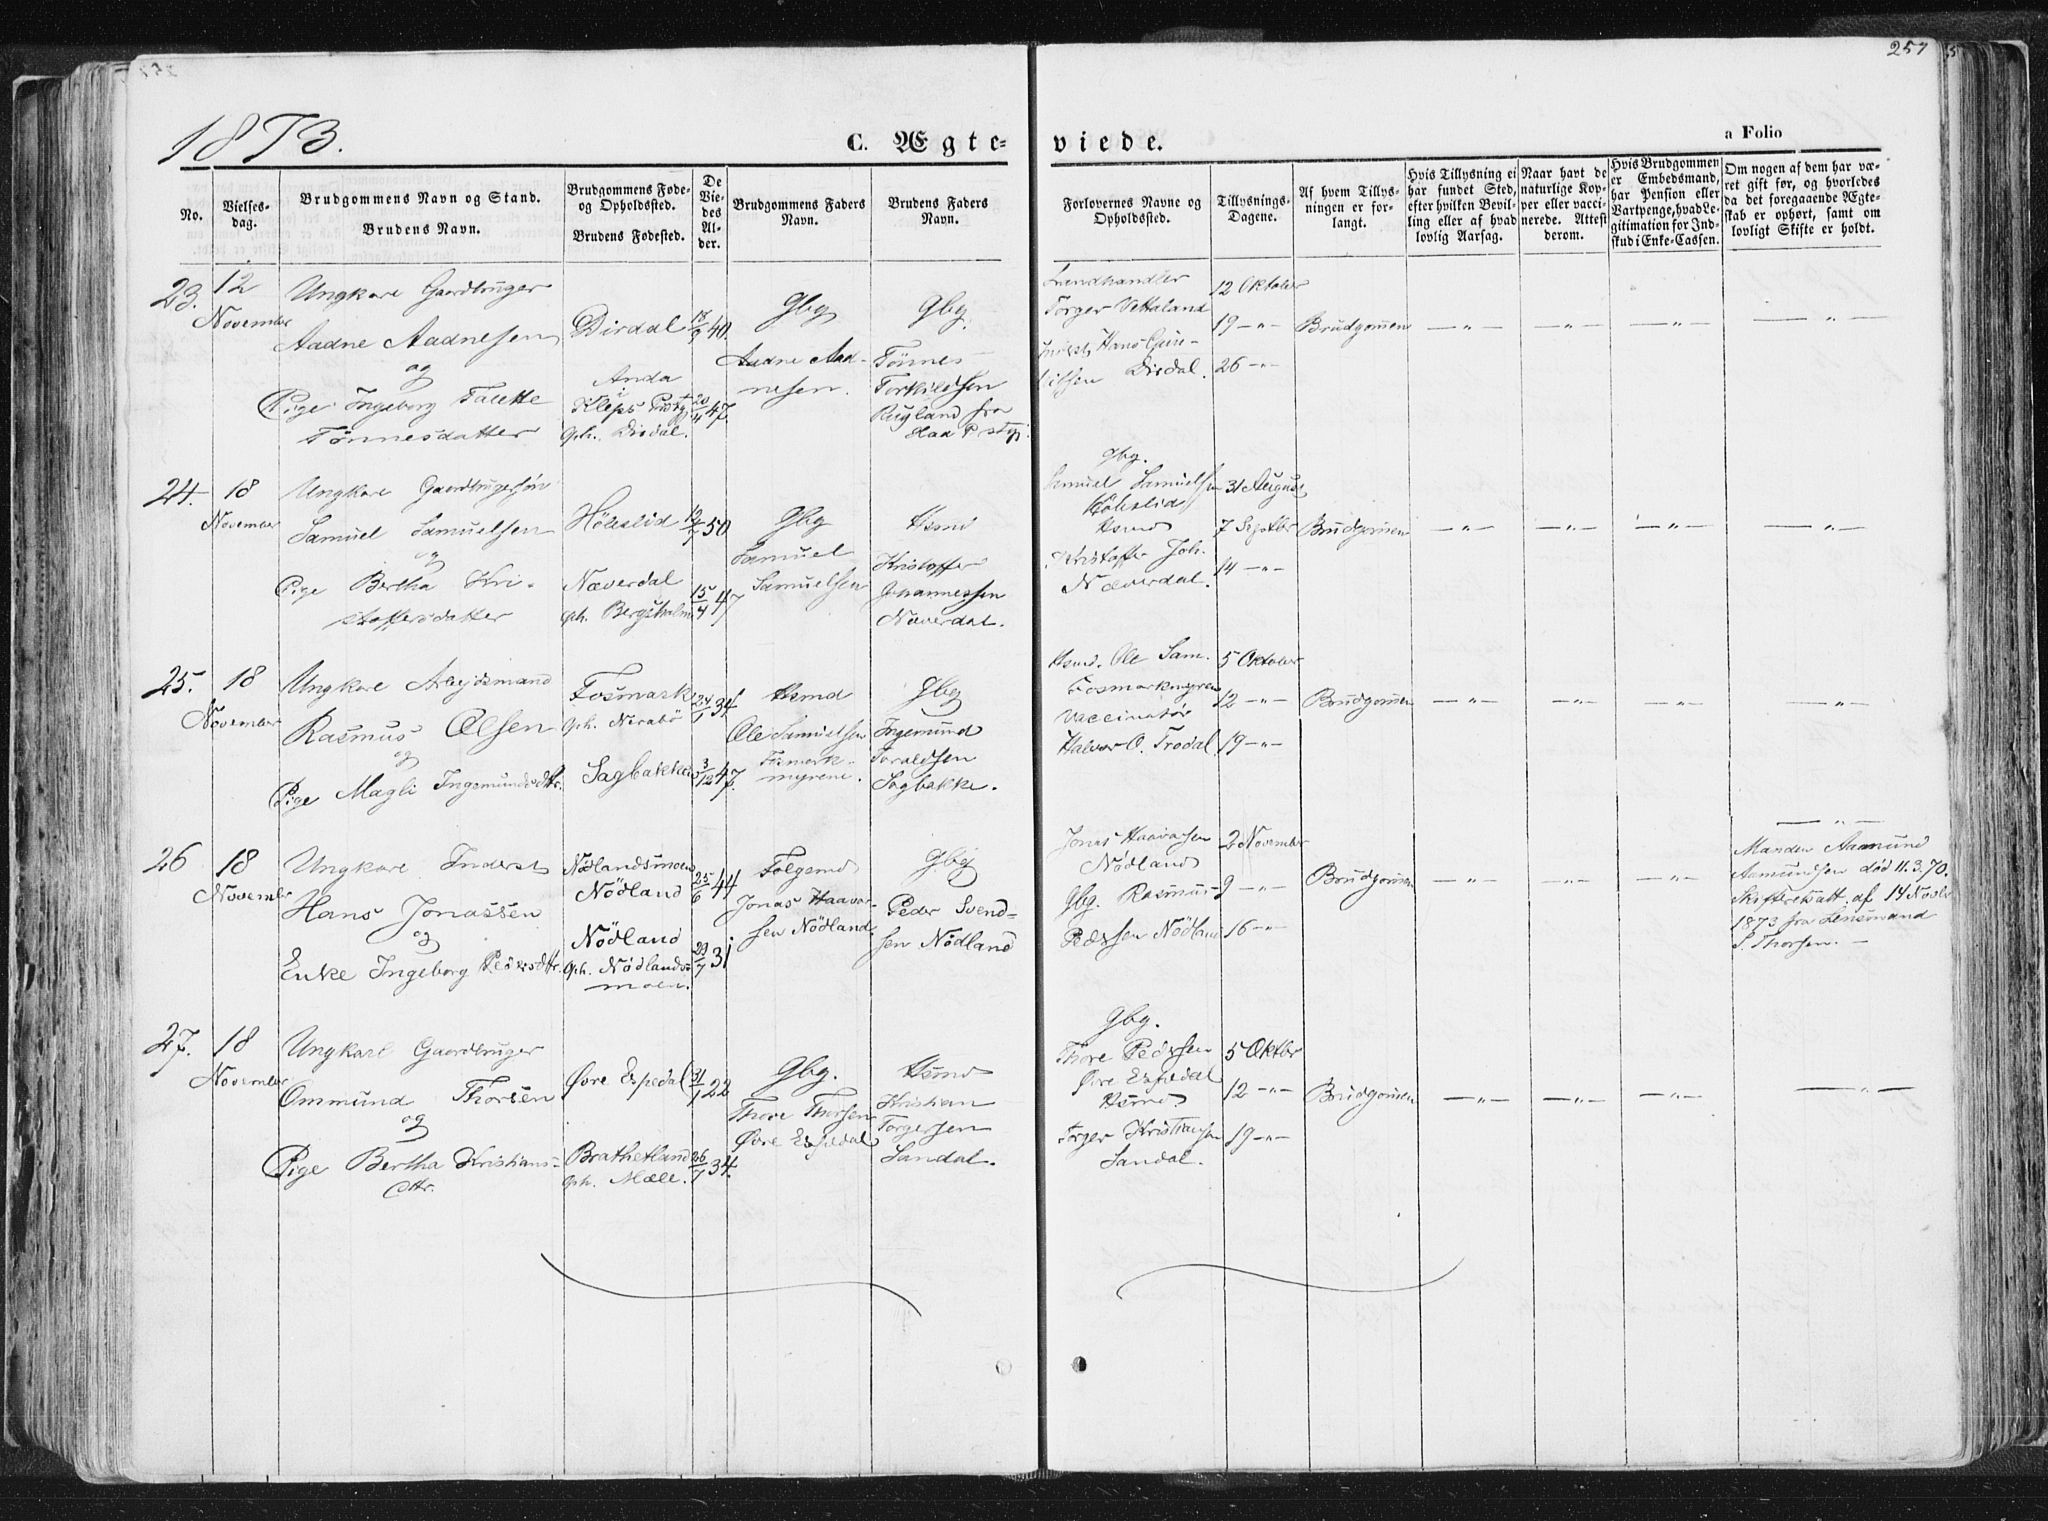 257
1873.
C. Ægte-
viede.
a Folio
No.
Vielses-
dag.
Brudgommens Navn og Stand.
Brudens Navn.
Brudgommens Føde-
og Opholdssted.
Brudens Fødested.
De
Vie-
des
Al-
der.
Brudgommens Faders
Navn.
Brudens Faders
Navn.
Forlovernes Navne og
Opholdssted.
Tillysnings-
Dagene.
Af hvem Tillys-
ningen er for-
langt.
Hvis Tillysning ei
har fundet Sted,
efter hvilken Bevil-
ling eller af hvad
lovlig Aarsag.
Naar havt de
naturlige Kop-
per eller vacci-
nerede. Attest
derom.
Hvis Brudgommen
er Embedsmand,
har Pension eller
Vartpenge, hvad Le-
gitimation for Ind-
skud i Enke-Cassen.
Om nogen af dem har væ-
ret gift før, og hvorledes
da det foregaaende Ægte-
skab er ophørt, samt om
lovligt Skifte er holdt.
23.
12
November
Ungkarl Gaardbruger
Aadne Aadnesen
og
Pige Ingeborg Talette
Tønnesdatter
Dirdal
Anda
i
Kleps Prstgj
Oph. Dirdal.
18/9 40.
20/4 47.
Gbg
Aadne Aad-
nesen.
Gbg.
Tønnes
Torkildsen
Rugland fra
Haa P.stgj.
Landhandler
Torger Vettaland
Inderst Hans Gun-
Dirdal.
12 Oktober
19 —"—
26 —"—
Brudgommen
—"—
—"—
—"—
—"—
24.
18
November
Ungkarl Gaardbrugersøn
Samuel Samuelsen
og
Pige Bertha Kri-
stoffersdatter
Høleslid
Næverdal
Oph. Bergsholm
12/7 50
15/4 47
Gbg
Samuel
Samuelsen
Hsmd
Kristoffer
Johannessen
Næverdal.
Gbg.
Samuel Samuelsen
Høleslid
Hsmd
Kristoffer Joh.
Næverdal.
31 August
7 Septbr
14 —"—
Brudgommen
—"—
—"—
—"—
—"—
25.
18
November
Ungkarl Arbejdsmand
Rasmus Olsen
og
Pige Magli Ingemundsdtr.
Fosmark
Oph. Nirabø
Sagbakken
24/1 34
3/12 47.
Hsmd
Ole Samuelsen
Fosmark-
myrene.
Gbg
Ingemund
Toraldsen
Sagbakke.
Hsmd. Ole Sam.
Fosmarkmyren
Vaccinatør
Halvor O. Frodal
5 Oktober
12 —"—
19 —"—
Brudgommen
—"—
—"—
—"—
—"—
26
18
November
Ungkarl Inderst
Hans Jonassen
og
Enke Ingeborg Pedersdtr.
Nødlandsmoen
Nødland
Nødland
Oph. Nødlands-
moen.
25/6 44
29/7 31
Følgemd
Jonas Haavor-
sen Nødland.
Gbg
Peder Svend-
sen Nødland
Jonas Haavorsen
Nødland
Gbg. Rasmus
Pedersen Nødland
2 November
9 —"—
16 —"—
Brudgommen
—"—
—"—
—"—
—"—
Manden Aamund
Asmundsen død 11.3.70.
Skifteretsatt. af 14 Novbr
1873 fra Lensmand
S. Thorsen. —
27.
18
November
Ungkarl Gaardbruger
Ommund Thorsen
og
Pige Bertha Kristians-
dtr.
Øvre Espedal
Brathetland
Oph. Mæle.
31/1 22
26/7 34.
Gbg.
Thore Thorsen
Øvre Espedal
Hsmd
Kristian
Torgersen
Sandal.
Gbg.
Thore Pedersen
Øvre Espedal
Hsmd.
Torger Kristiansen
Sandal.
5 Oktbr
12 —"—
19 —"—
Brudgommen
—"—
—"—
—"—
—"—